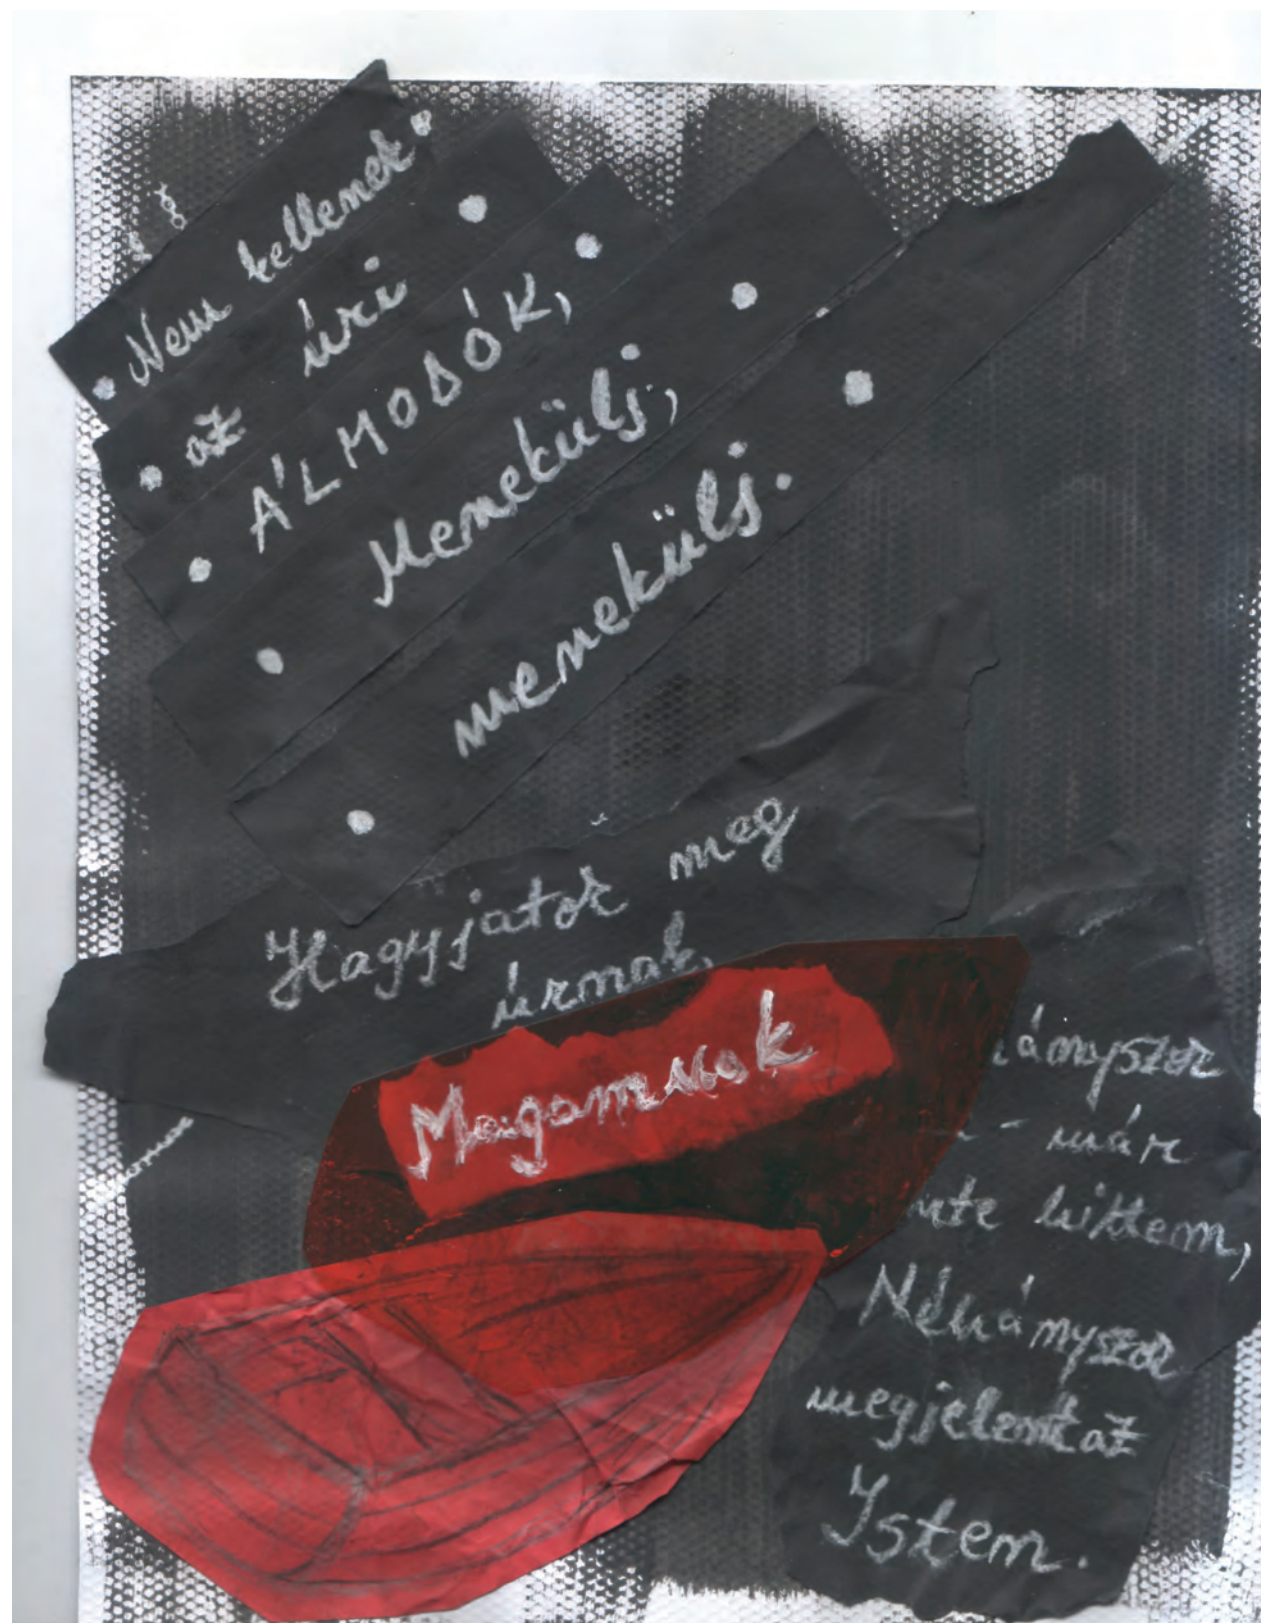 Nem kellenek
az úri
ÁLMODÓK,
Menekülj,
menekülj.
Hagyjatok meg
úrnak,
Magamnak
ányszor
- már
nte hittem,
Néhányszor
megjelent az
Isten.